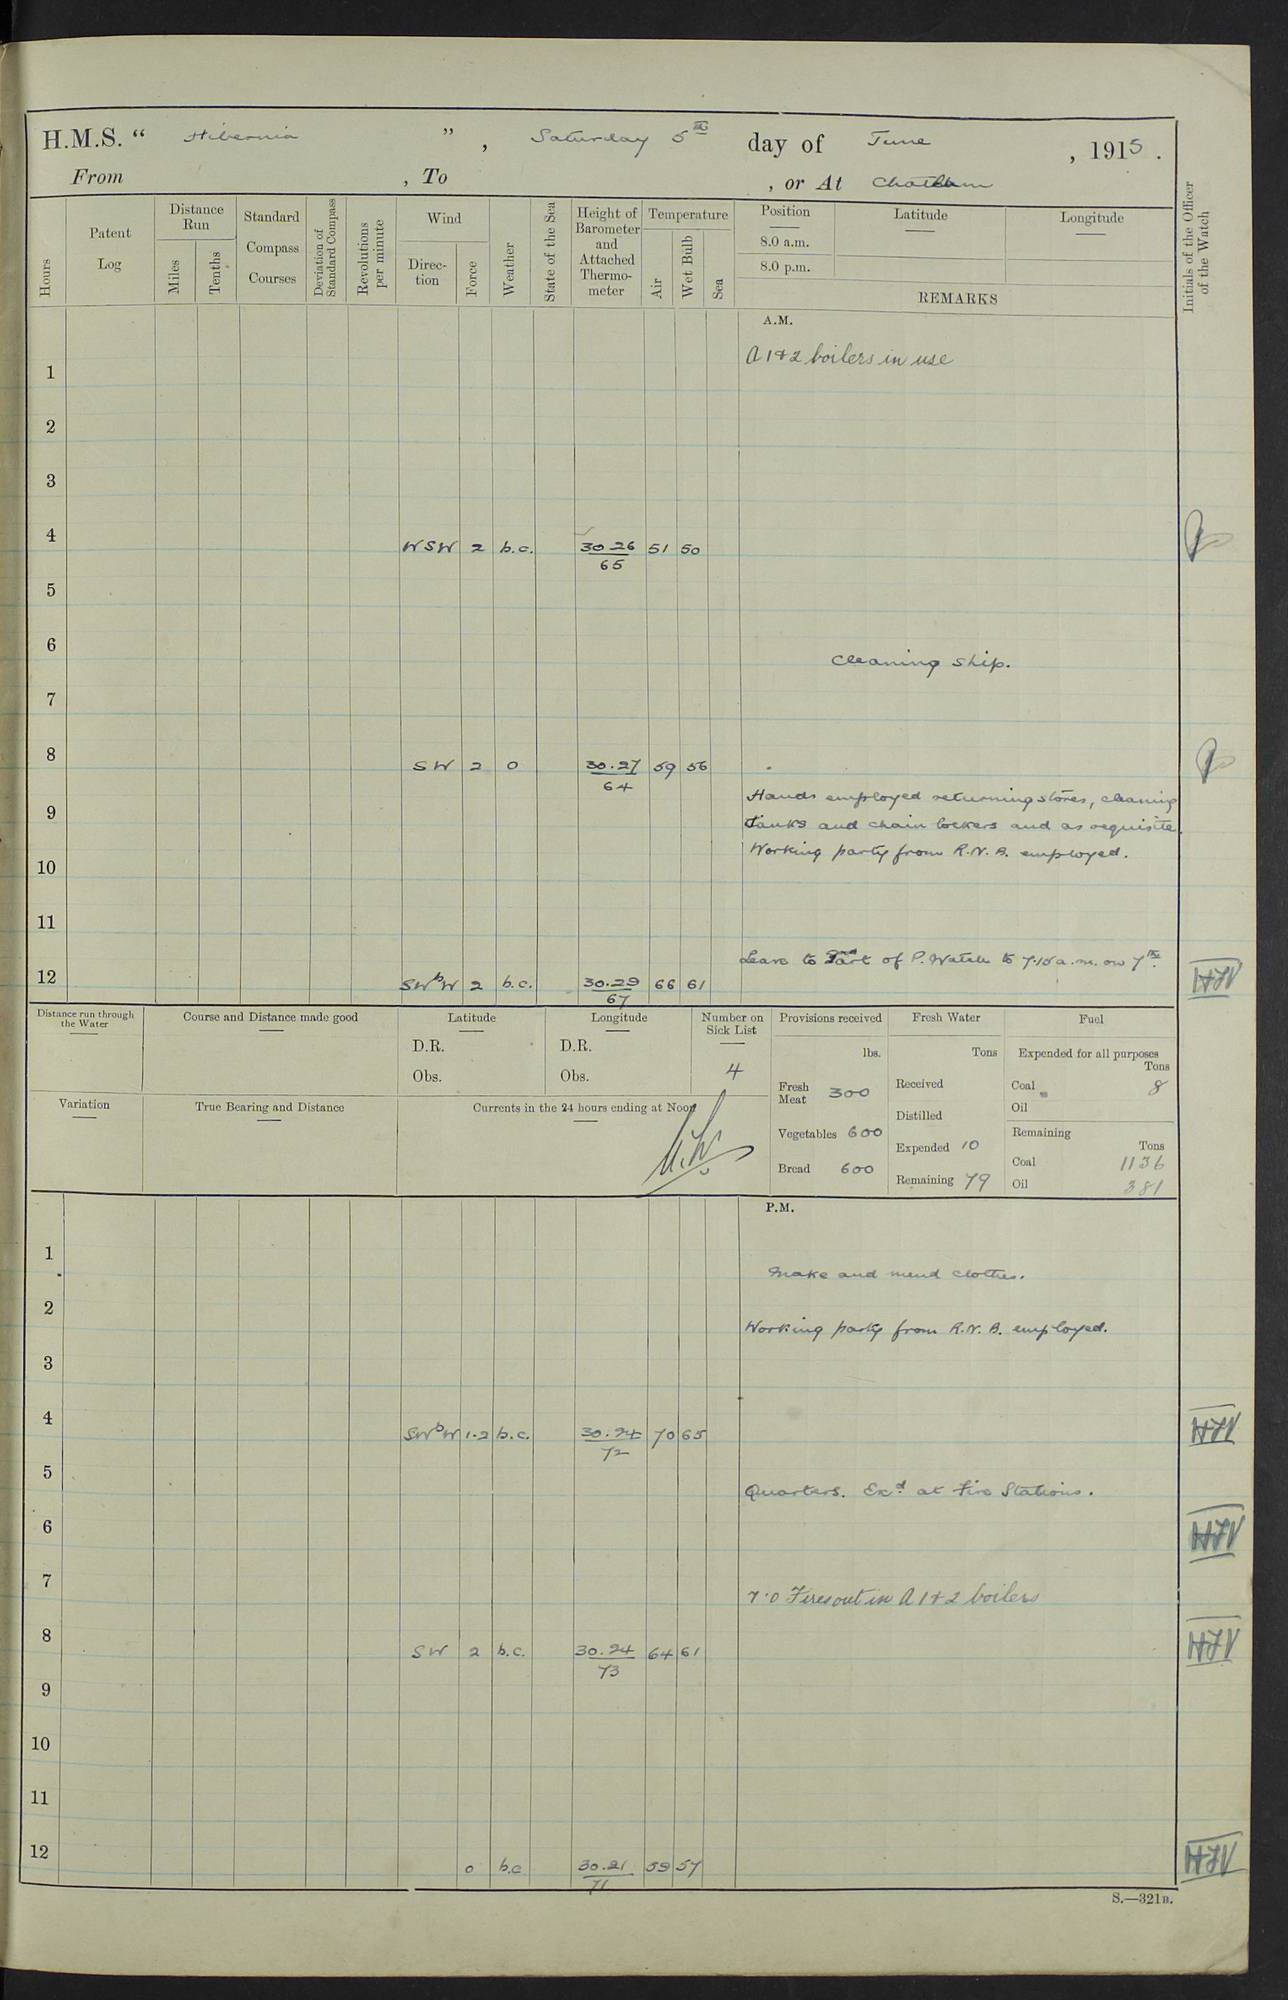 H.M.S. “ Hibernia ” , Saturday 5th day of June , 1915 .
From , To , or At Chatham
Hours
Patent Log
Distance Run
Miles
Tenths
Standard Compass Courses
Deviation of Standard Compass
Revolutions per minute
Wind
Direction
Force
Weather
State of the Sea
Height of Barometer and Attached Thermometer
Temperature
Air
Wet Bulb
Sea
Position
8.0 a.m.
8.0 p.m.
Latitude
Longitude
REMARKS
Initials of the Officer of the Watch
A.M.
A 1 & 2 boilers in use
1
2
3
4 WSW 2 b.c. 30.26 51 50
65
5
6
Cleaning ship.
7
8 SW 2 0 30.27 59 56
64
Hands employed returning stores, cleaning
9
tanks and chain lockers and as requisite.
Working party from R.N.B. employed.
10
11
Leave to Part of P. Watch to 7.15 a.m. on 7th.
12 SWbW 2 b.c. 30.29 66 61 HJV
67
Distance run through the Water
Course and Distance made good
Latitude
D.R.
Obs.
Longitude
D.R.
Obs.
Number on Sick List
4
Variation
True Bearing and Distance
Currents in the 24 hours ending at Noon
Provisions received
lbs.
Fresh Meat 300
Vegetables 600
Bread 600
Fresh Water
Tons
Received
Distilled
Expended 10
Remaining 79
Fuel
Expended for all purposes
Tons
Coal 8
Oil
Remaining
Tons
Coal 1136
Oil 381
P.M.
1
Make and mend clothes.
2
Working party from R.N.B. employed.
3
4 SWbW 1-2 b.c. 30.24 70 65 HJV
72
5
Quarters. Exd. at Fire Stations.
6 HJV
7
7.0 Fires out in A 1 & 2 boilers
8 SW 2 b.c. 30.24 64 61 HJV
73
9
10
11
12 0 b.c 30.21 59 57 HJV
71
S.—321B.